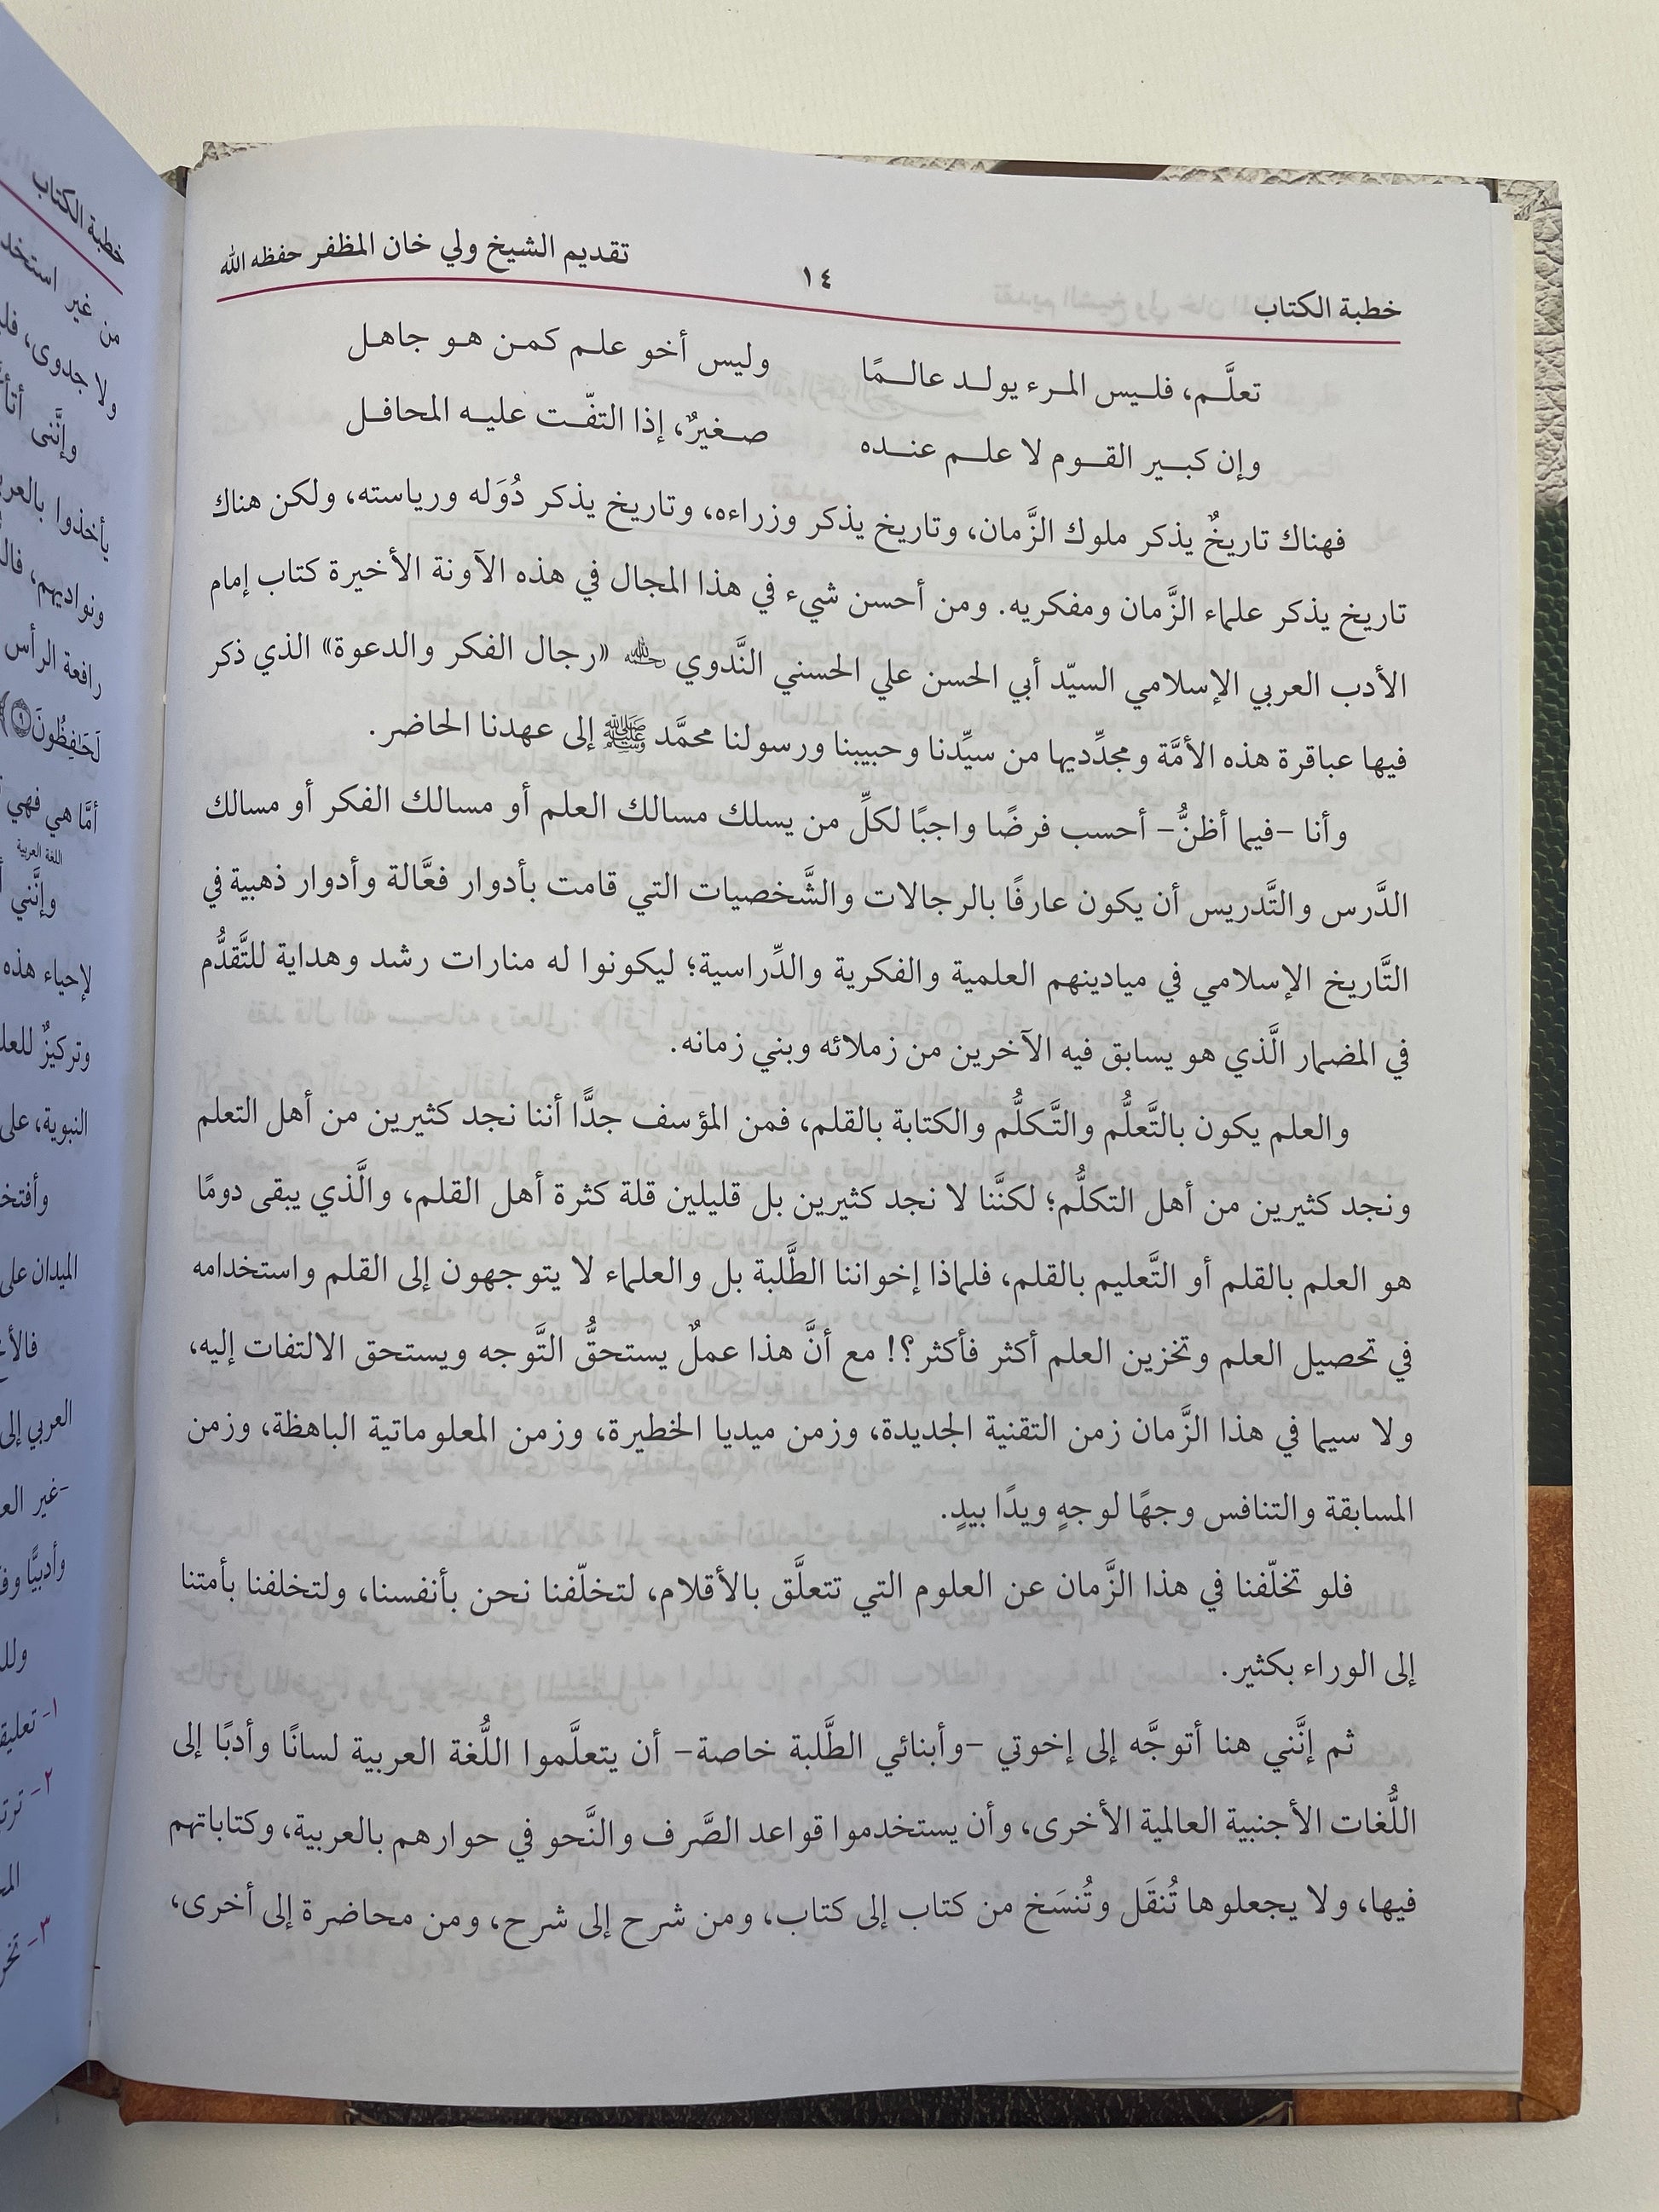 خطبة الكتاب ١٤ تقديم الشيخ ولي خان المظفر حفظه الله
تعلَّـم، فلـيس المـرء يولـد عالـمًا وليس أخو علـم كمـن هـو جاهـل
وإن كبـير القـوم لا علـم عنـده صـغيرٌ، إذا التفّـت عليـه المحافـل
فهناك تاريخٌ يذكر ملوك الزَّمان، وتاريخ يذكر وزراءه، وتاريخ يذكر دُوَله ورياسته، ولكن هناك
تاريخ يذكر علماء الزَّمان ومفكريه. ومن أحسن شيء في هذا المجال في هذه الآونة الأخيرة كتاب إمام
الأدب العربي الإسلامي السيّد أبي الحسن علي الحسني النَّدوي رحمه الله «رجال الفكر والدعوة» الذي ذكر
فيها عباقرة هذه الأمَّة ومجدِّديها من سيِّدنا وحبيبنا ورسولنا محمَّد ﷺ إلى عهدنا الحاضر.
وأنا –فيما أظنُّ– أحسب فرضًا واجبًا لكلِّ من يسلك مسالك العلم أو مسالك الفكر أو مسالك
الدَّرس والتَّدريس أن يكون عارفًا بالرجالات والشَّخصيات التي قامت بأدوار فعَّالة وأدوار ذهبية في
التَّاريخ الإسلامي في ميادينهم العلمية والفكرية والدِّراسية؛ ليكونوا له منارات رشد وهداية للتَّقدُّم
في المضمار الَّذي هو يسابق فيه الآخرين من زملائه وبني زمانه.
والعلم يكون بالتَّعلُّم والتَّكلُّم والكتابة بالقلم، فمن المؤسف جدًّا أننا نجد كثيرين من أهل التعلم
ونجد كثيرين من أهل التكلُّم؛ لكنَّنا لا نجد كثيرين بل قليلين قلة كثرة أهل القلم، والَّذي يبقى دومًا
هو العلم بالقلم أو التَّعليم بالقلم، فلماذا إخواننا الطَّلبة بل والعلماء لا يتوجهون إلى القلم واستخدامه
في تحصيل العلم وتخزين العلم أكثر فأكثر؟! مع أنَّ هذا عملٌ يستحقُّ التَّوجه ويستحق الالتفات إليه،
ولا سيما في هذا الزَّمان زمن التقنية الجديدة، وزمن ميديا الخطيرة، وزمن المعلوماتية الباهظة، وزمن
المسابقة والتنافس وجهًا لوجهٍ ويدًا بيدٍ.
فلو تخلّفنا في هذا الزَّمان عن العلوم التي تتعلَّق بالأقلام، لتخلّفنا نحن بأنفسنا، ولتخلفنا بأمتنا
إلى الوراء بكثير.
ثم إنَّني هنا أتوجَّه إلى إخوتي –وأبنائي الطَّلبة خاصة– أن يتعلَّموا اللُّغة العربية لسانًا وأدبًا إلى
اللُّغات الأجنبية العالمية الأخرى، وأن يستخدموا قواعد الصَّرف والنَّحو في حوارهم بالعربية، وكتاباتهم
فيها، ولا يجعلوها تُنقَل وتُنسَخ من كتاب إلى كتاب، ومن شرح إلى شرح، ومن محاضرة إلى أخرى،
خطبة الكتاب
من غير
ولا جدوى،
وإنَّني
يأخذوا
ونواديهم،
رافعة الرأس
لَحَـٰفِظُونَ
أمَّا هي فهي
اللغة العربية
وإنَّني
لإحياء هذه
وتركيزٌ
النبوية، على
الميدان على
العربي إلى
-غير
وأدبيًّا
١-
٢-
٣-